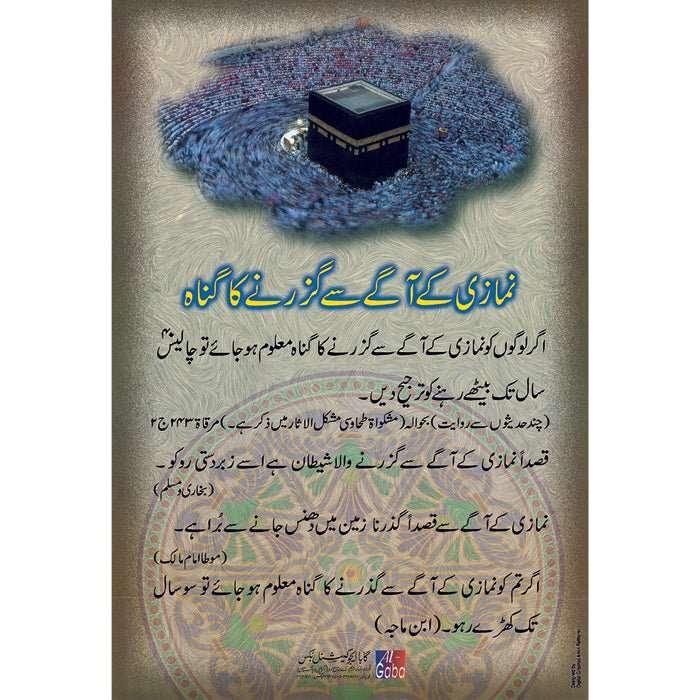 نمازی کے آگے سے گزرنے کا گناہ
اگر لوگوں کو نمازی کے آگے سے گزرنے کا گناہ معلوم ہو جائے تو چالیس ۴۰
سال تک بیٹھے رہنے کو ترجیح دیں۔
(چند حدیثوں سے روایت) بحوالہ (مشکواۃ طحاوسی مشکل الاثار میں ذکر ہے۔) مرقاۃ ۲۴۳ ج ۲
قصداً نمازی کے آگے سے گزرنے والا شیطان ہے اسے زبردستی روکو ۔
(بخاری و مسلم)
نمازی کے آگے سے قصداً گذرنا زمین میں دھنس جانے سے بُرا ہے۔
(موطا امام مالک)
اگر تم کو نمازی کے آگے سے گذرنے کا گناہ معلوم ہو جائے تو سو سال
تک کھڑے رہو۔ (ابن ماجہ)
گابا ایجوکیشنل بکس
Al-
Gaba